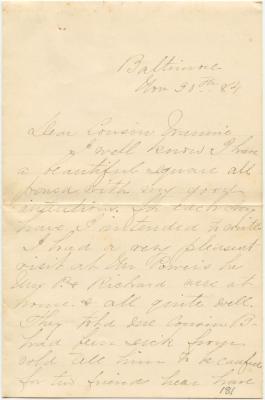 Baltimore
Nov 30th 84
Dear Cousin
I well know I have
a beautiful square all
paved with my good
intentions. For each one
have I intended to write
I had a very pleasant
visit at Mr Powers he
& Richard were at
home & all quite well.
They told Cousin B-
had been sick from
cold tell him to be careful
for two friends hear have
181